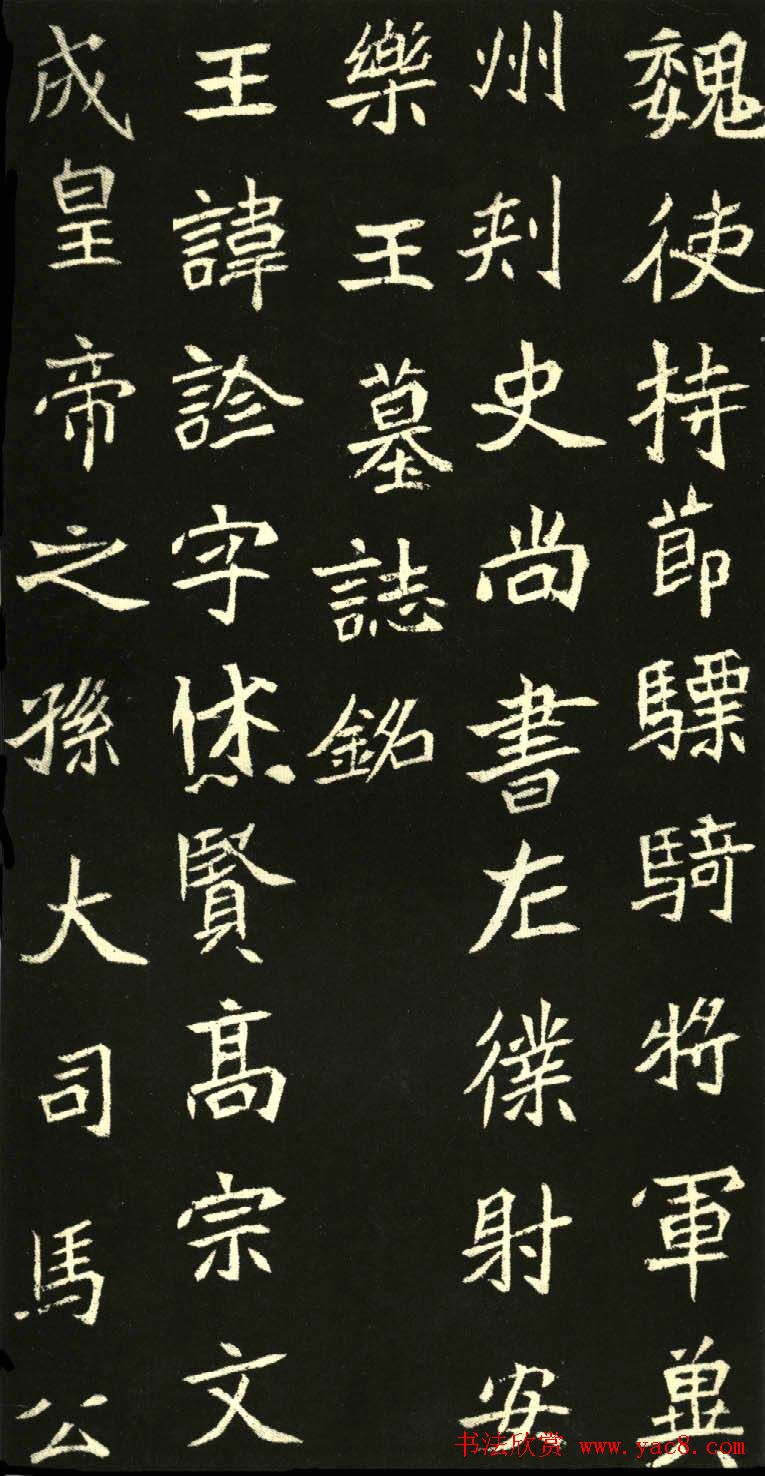 魏使持節驃騎將軍冀
州刺史尚書左僕射安
樂王墓誌銘
王諱詮字休賢高宗文
成皇帝之孫大司馬公
书法欣赏 www.yac8.com